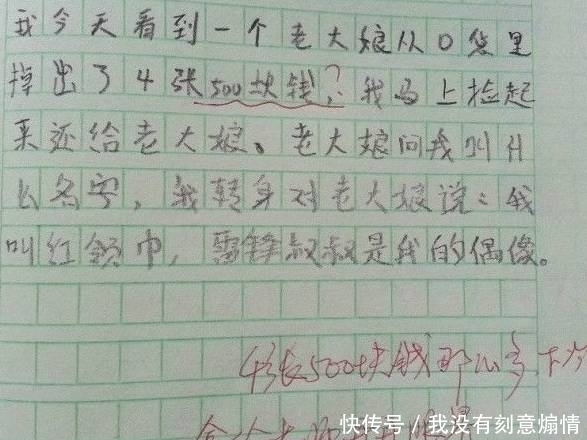 我今天看到一个老大娘从口袋里
掉出了4张500块钱，我马上捡起
来还给老大娘。老大娘问我叫什
么名字，我转身对老大娘说：我
叫红领巾，雷锋叔叔是我的偶像。
?
4张500块钱那么多下次
快传号/我没有刻意煽情